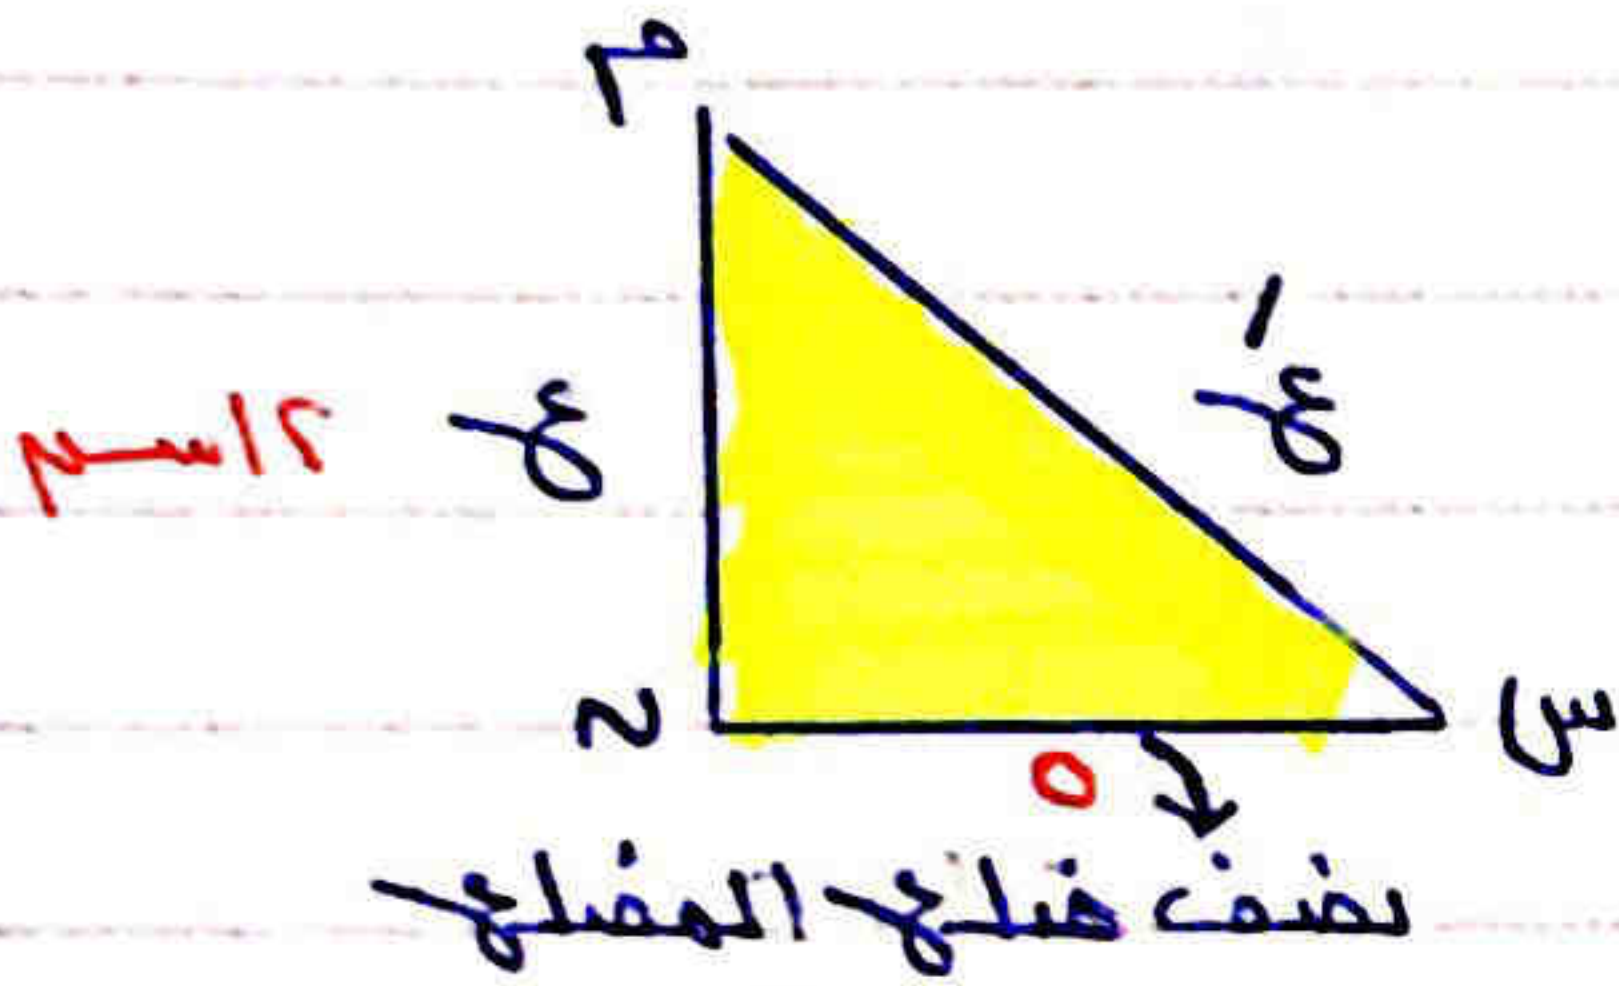 م
عَ
ع ١٢سم
س ن
٥
نصف ضلع المضلع